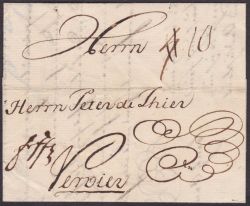 Herrn
10
Herrn Peter de Thier
Vervier